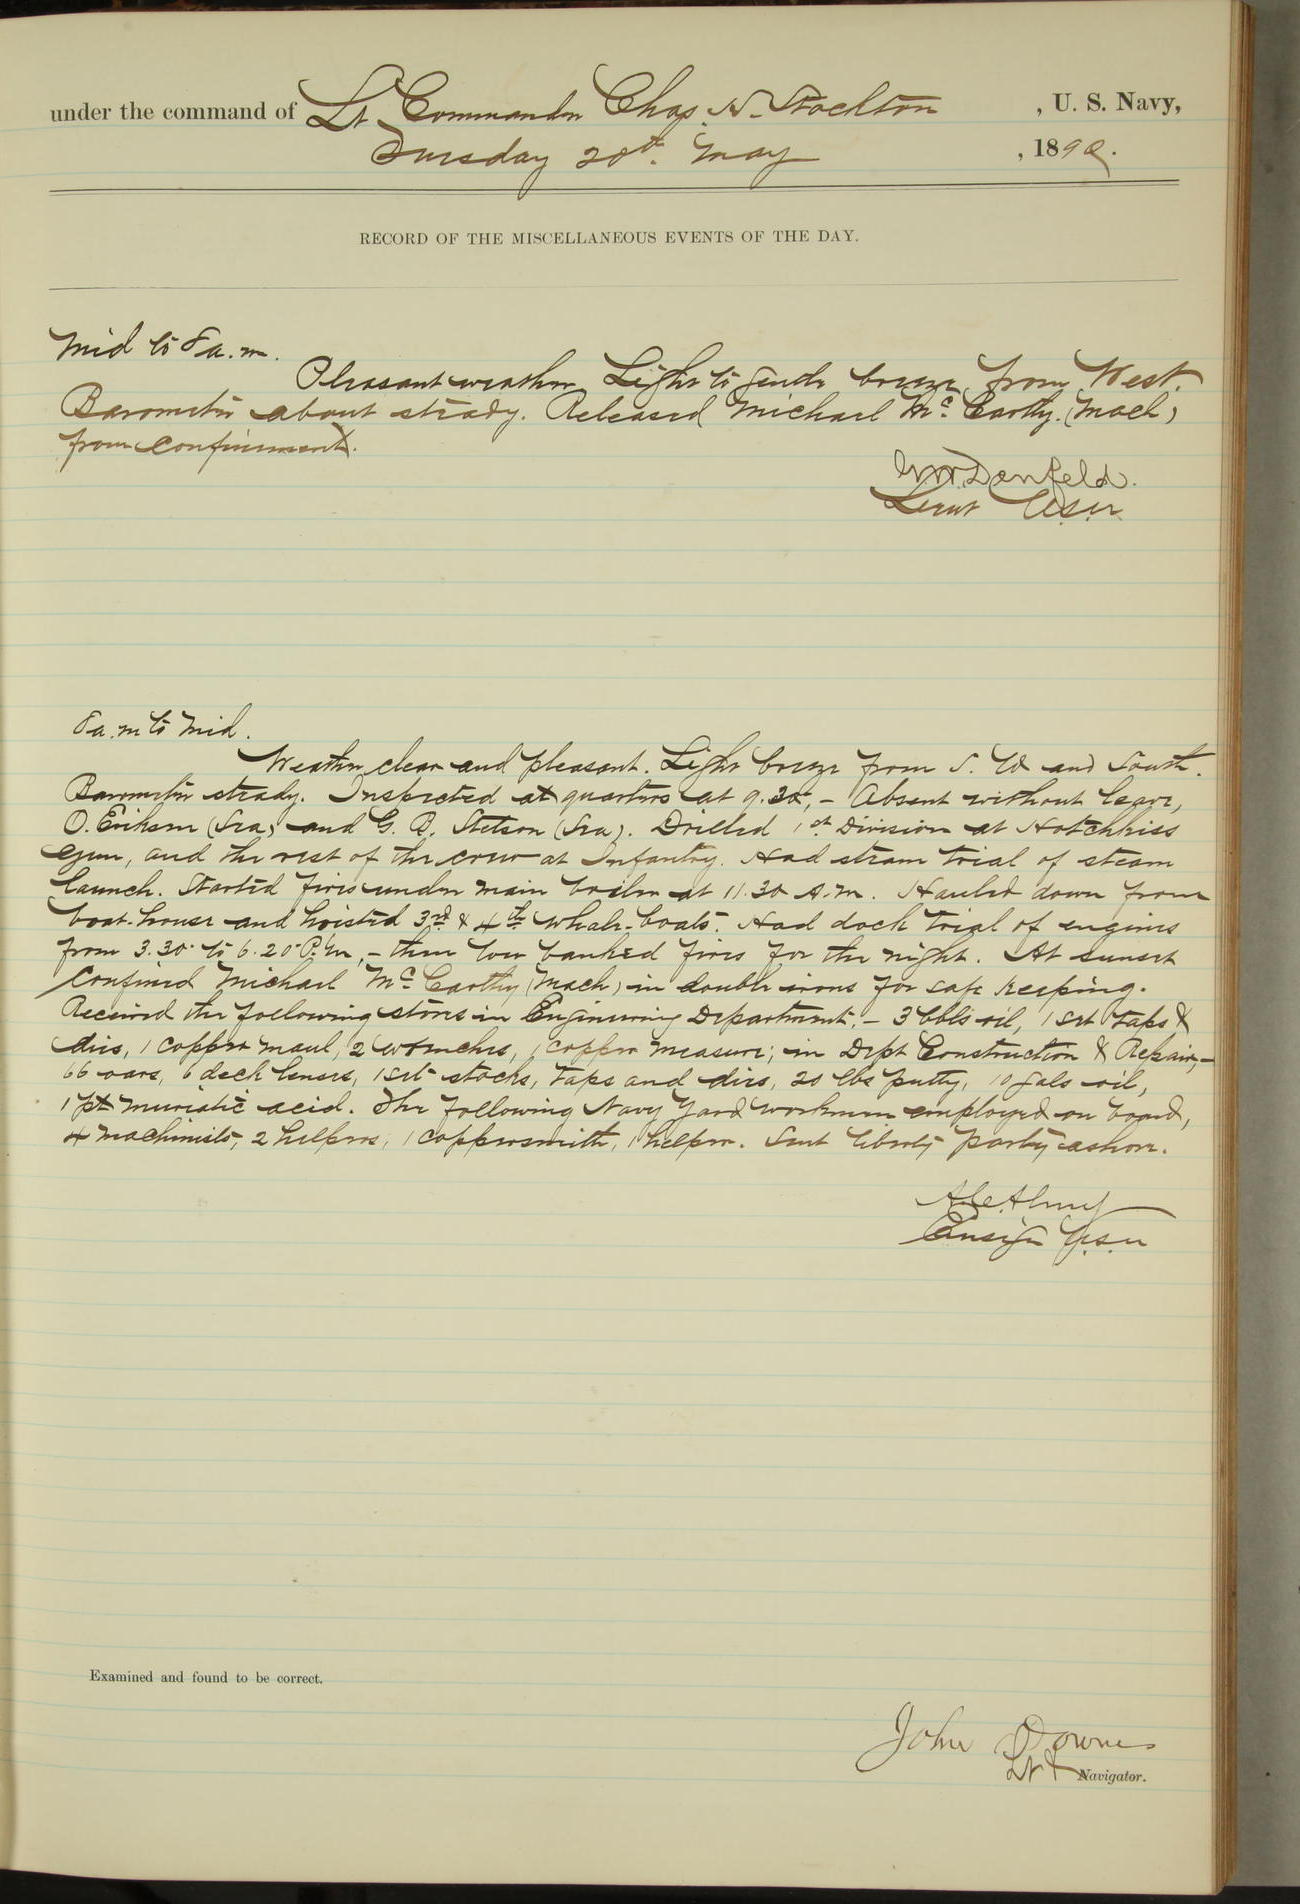 under the command of Lt. Commander Chas. H. Stockton, U. S. Navy,
Tuesday 20th. May, 1890.
RECORD OF THE MISCELLANEOUS EVENTS OF THE DAY.
Mid to 8 a.m.
Pleasant weather. Light to gentle breeze from West.
Barometer about steady. Released Michael McCarthy. (Mach)
from confinement.
Denfeld.
Lieut U.S.N.
8 a.m to Mid.
Weather clear and pleasant. Light breeze from S. W and South.
Barometer steady. Inspected at quarters at 9.30, - Absent without leave,
O. Erikson (Sea) and G. B. Stetson (Sea). Drilled 1st Division at Hotchkiss
gun, and the rest of the crew at Infantry. Had steam trial of steam
launch. Started fires under main boiler at 11.30 A.m. Hauled down from
boat-house and hoisted 3rd & 4th whale-boats. Had dock trial of engines
from 3.30 to 6.20 P.M, - then banked fires for the night. At sunset
confined Michael McCarthy (Mach) in double irons for safe keeping.
Received the following stores in Engineering Department. - 3 bbls oil, 1 set taps &
dies, 1 copper maul, 2 wrenches, 1 copper measure; in Dept Construction & Repair, -
66 oars, 6 deck lenses, 1 set stocks, taps and dies, 20 lbs putty, 10 gals oil,
1 pt muriatic acid. The following Navy Yard workmen employed on board,
4 machinists, 2 helpers, 1 coppersmith, 1 helper. Sent liberty party ashore.
Ensign U.S.N
Examined and found to be correct.
John Downes
Lt & Navigator.